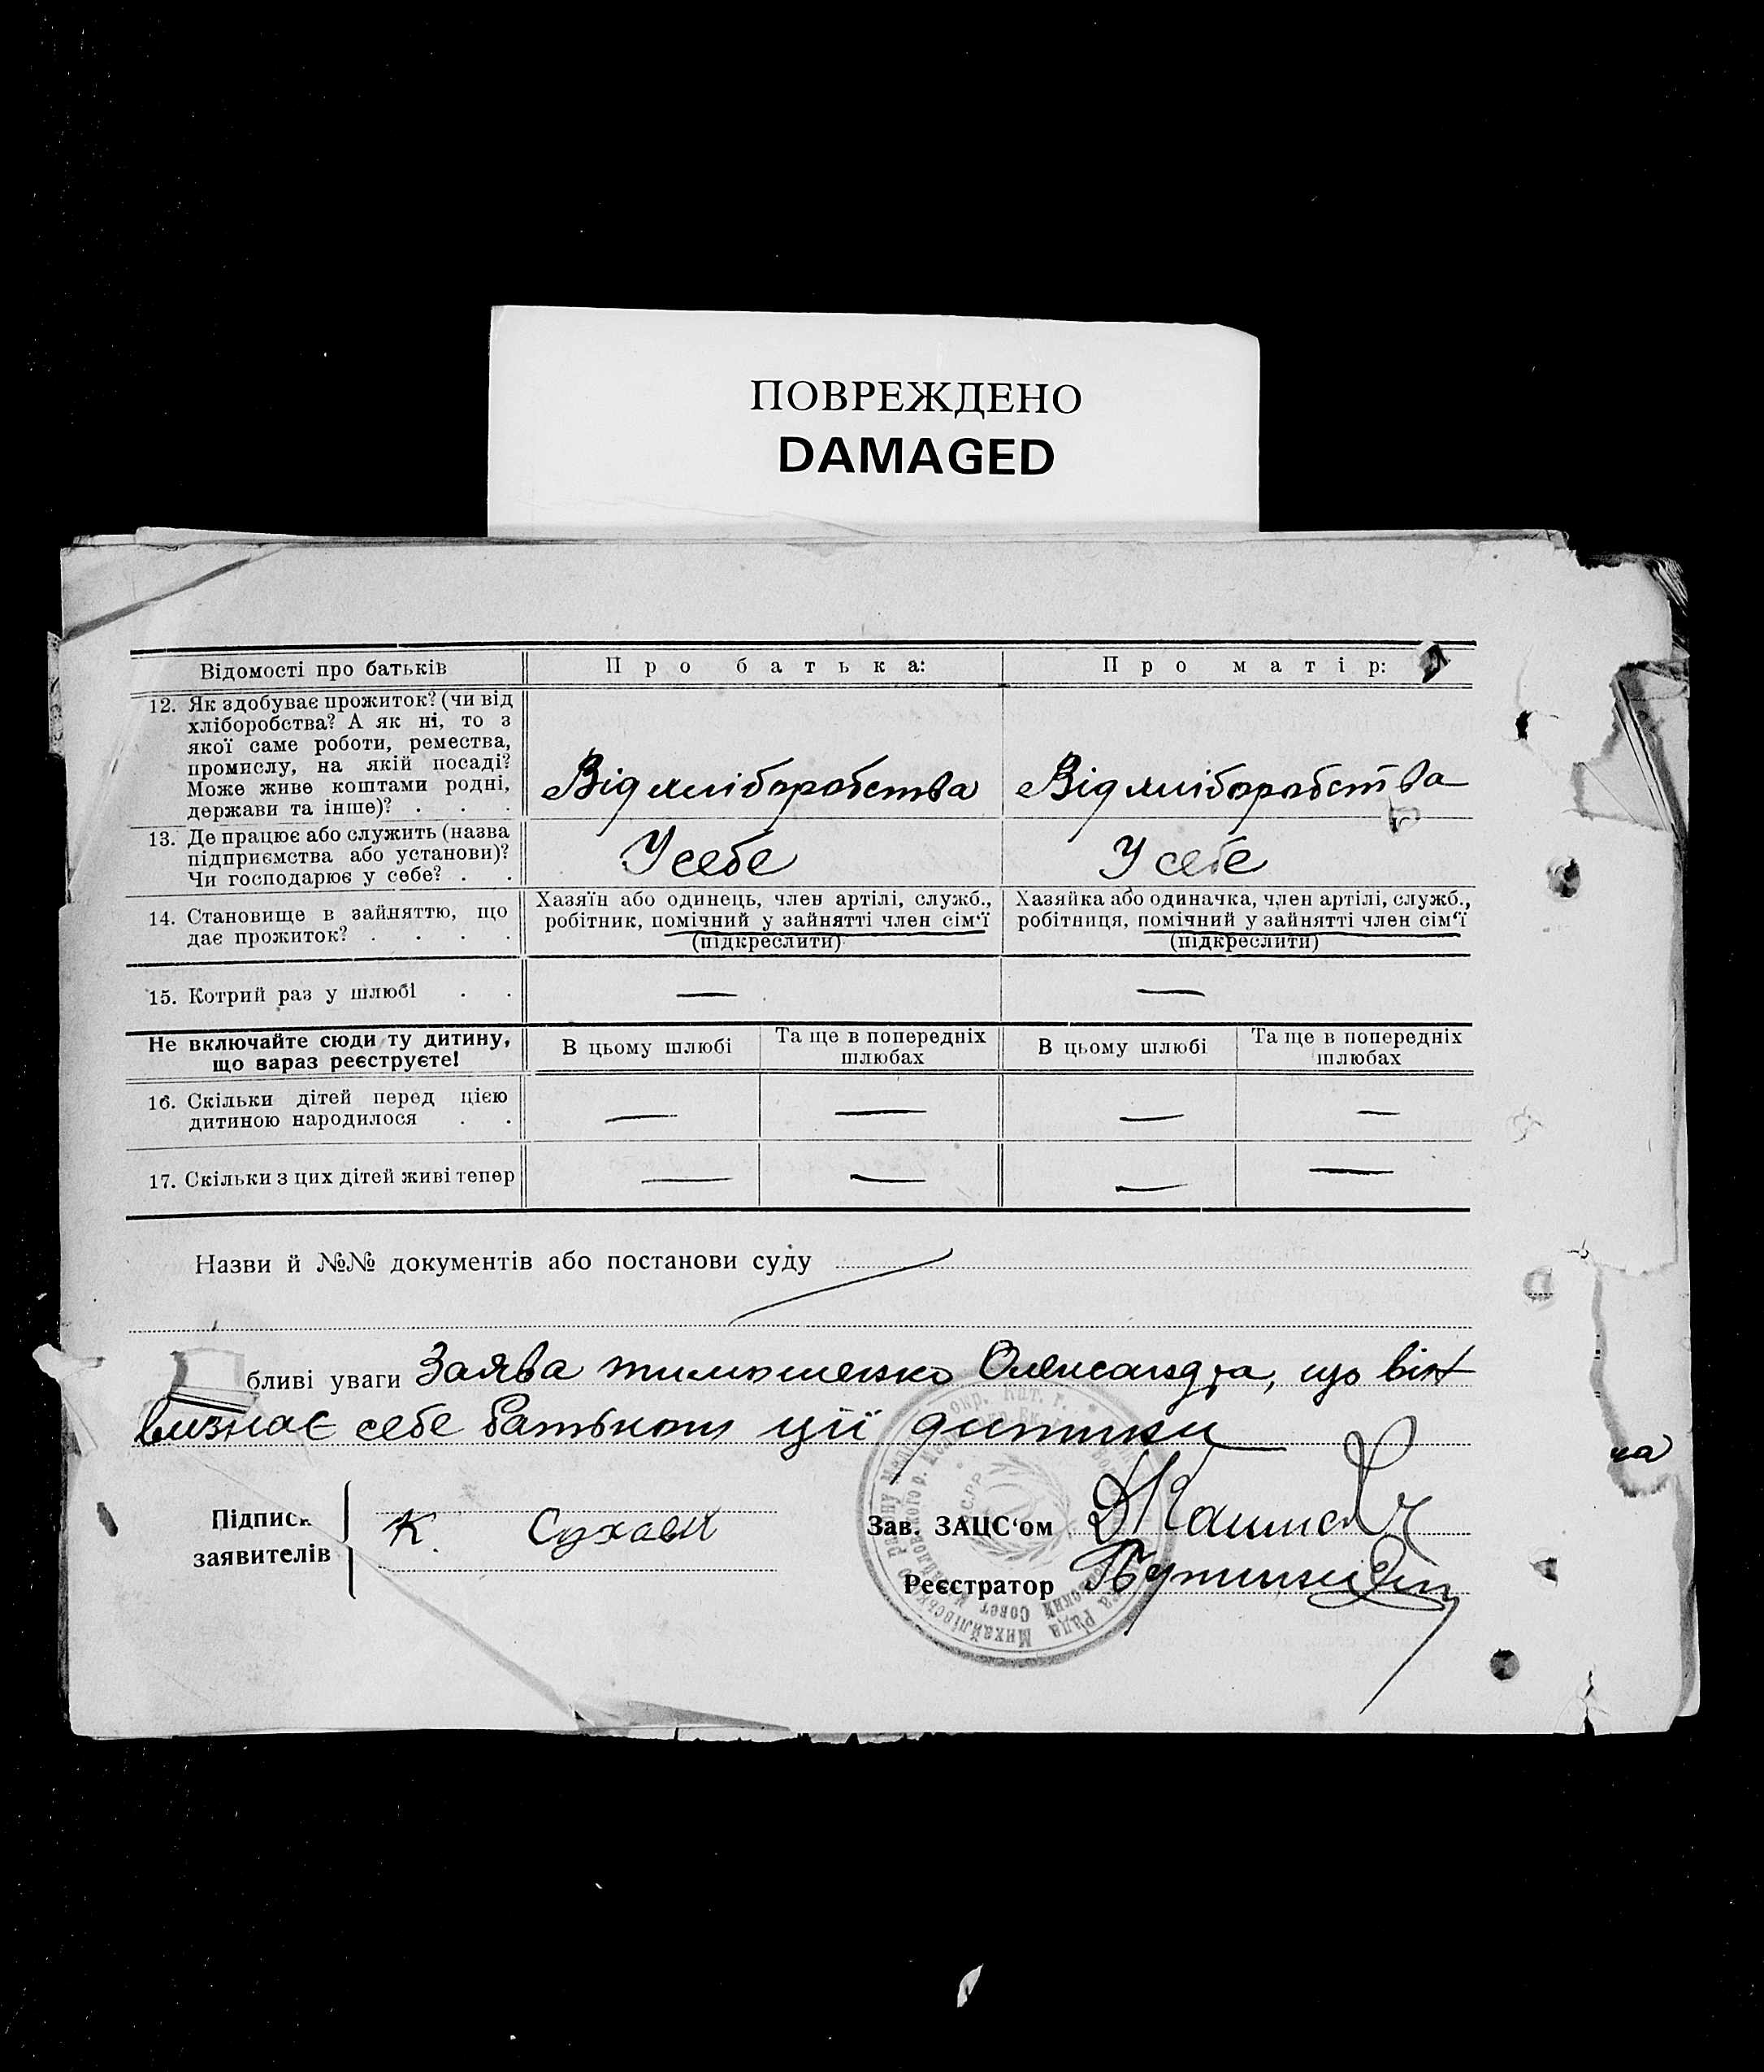 ПОВРЕЖДЕНО
DAMAGED
Відомості про батьків
Про батька:
Про матір:
12. Як здобуває прожиток? (чи від
хліборобства? А як ні, то з
якої саме роботи, ремества,
промислу, на якій посаді?
Може живе коштами родні,
держави та інше)? . . .
Від хліборобства
Від хліборобства
13. Де працює або служить (назва
підприємства або установи)?
Чи господарює у себе? . .
У себе
У себе
14. Становище в зайняттю, що
дає прожиток? . . . .
Хазяїн або одинець, член артілі, служб.,
робітник, помічний у зайнятті член сім'ї
(підкреслити)
Хазяйка або одиначка, член артілі, служб.,
робітниця, помічний у зайнятті член сім'ї
(підкреслити)
15. Котрий раз у шлюбі . .
— —
Не включайте сюди ту дитину,
що зараз реєструєте!
В цьому шлюбі
Та ще в попередніх
шлюбах
В цьому шлюбі
Та ще в попередніх
шлюбах
16. Скільки дітей перед цією
дитиною народилося . .
— — — —
17. Скільки з цих дітей живі тепер
— — — —
Назви й №№ документів або постанови суду
бливі уваги Заява тимошенко Олександра, що він
визнає себе батьком ції дитини
ка
Підписи
заявителів
К. Сухавы
Зав. ЗАЦС'ом
Реєстратор